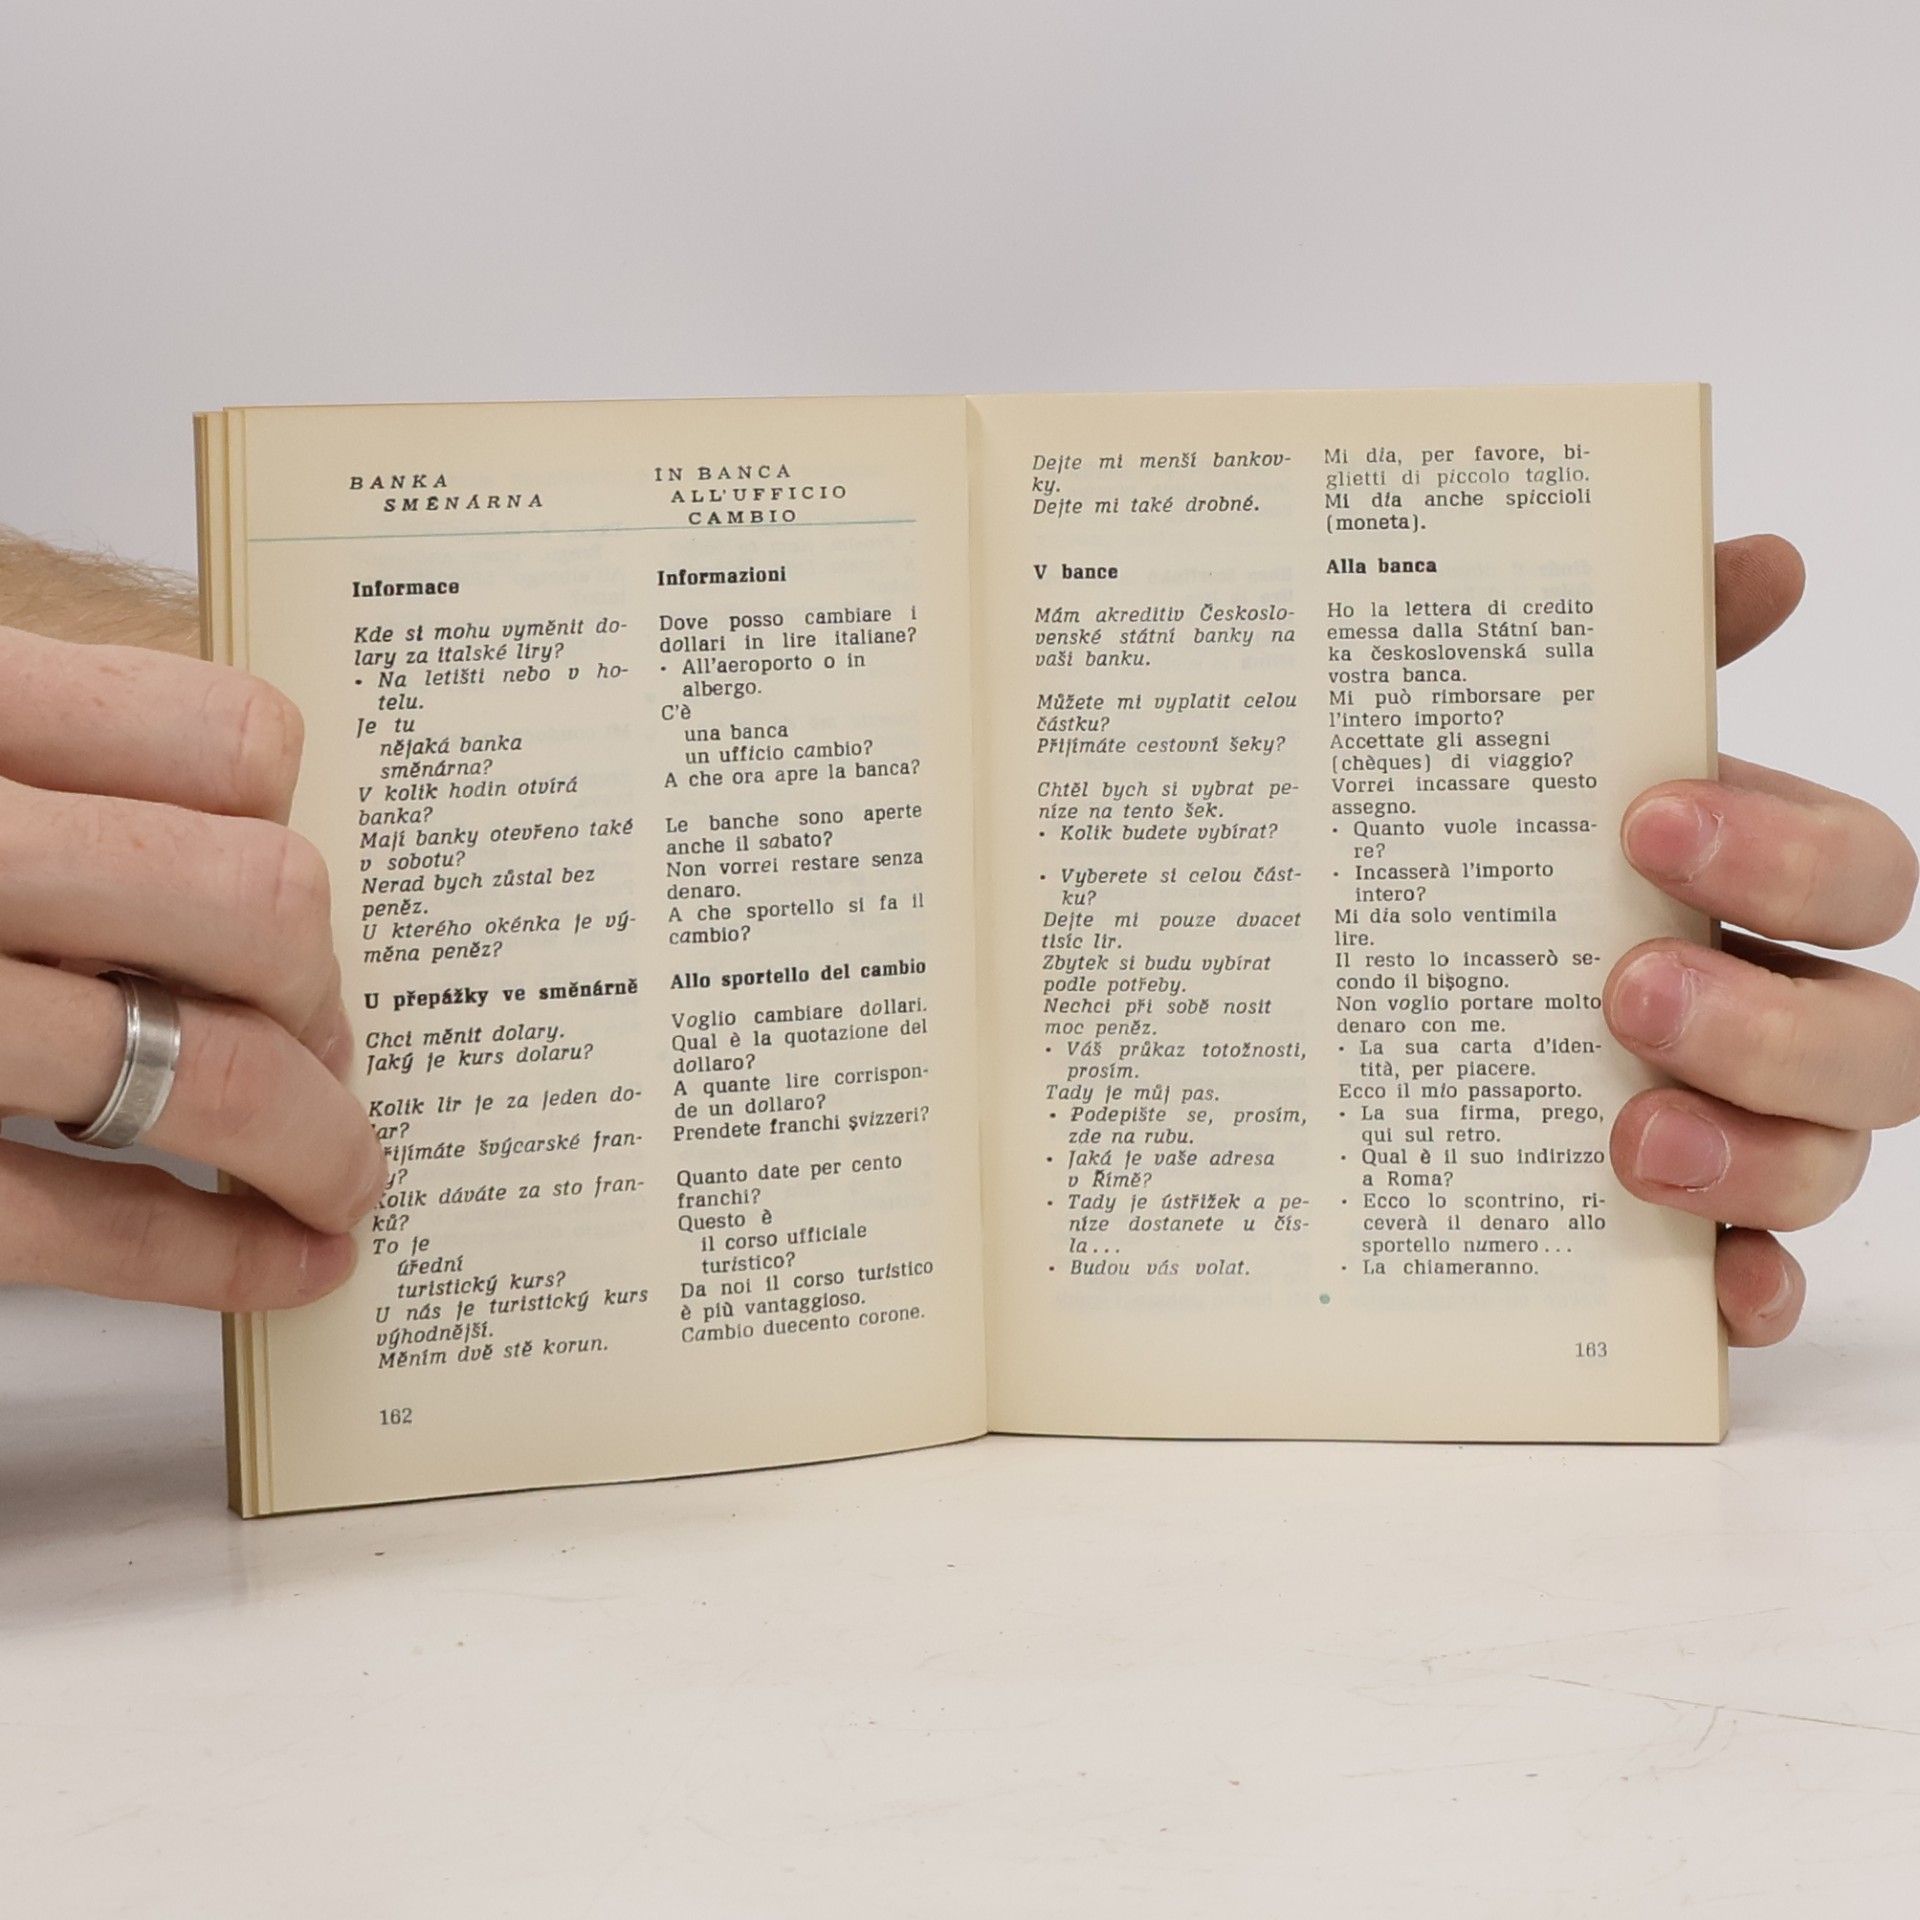 BANKA
SMĚNÁRNA
Informace
Kde si mohu vyměnit do-
lary za italské liry?
• Na letišti nebo v ho-
telu.
Je tu
nějaká banka
směnárna?
V kolik hodin otvírá
banka?
Mají banky otevřeno také
v sobotu?
Nerad bych zůstal bez
peněz.
U kterého okénka je vý-
měna peněz?
U přepážky ve směnárně
Chci měnit dolary.
Jaký je kurs dolaru?
Kolik lir je za jeden do-
lar?
švýcarské fran-
dáváte za sto fran-
ků?
To je
úřední
turistický kurs?
U nás je turistický kurs
výhodnější.
Měním dvě stě korun.
162
IN BANCA
ALL'UFFICIO
CAMBIO
Informazioni
Dove posso cambiare i
dollari in lire italiane?
• All'aeroporto o in
albergo.
C'è
una banca
un ufficio cambio?
A che ora apre la banca?
Le banche sono aperte
anche il sabato?
Non vorrei restare senza
denaro.
A che sportello si fa il
cambio?
Allo sportello del cambio
Voglio cambiare dollari.
Qual è la quotazione del
dollaro?
A quante lire corrispon-
de un dollaro?
Prendete franchi svizzeri?
Quanto date per cento
franchi?
Questo è
il corso ufficiale
turistico?
Da noi il corso turistico
è più vantaggioso.
Cambio duecento corone.
Dejte mi menší bankov-
ky.
Dejte mi také drobné.
V bance
Mám akreditiv Českoslo-
venské státní banky na
vaši banku.
Můžete mi vyplatit celou
částku?
Přijímáte cestovní šeky?
Chtěl bych si vybrat pe-
níze na tento šek.
• Kolik budete vybírat?
• Vyberete si celou část-
ku?
Dejte mi pouze dvacet
tisíc lir.
Zbytek si budu vybírat
podle potřeby.
Nechci při sobě nosit
moc peněz.
• Váš průkaz totožnosti,
prosím.
Tady je můj pas.
• Podepište se, prosím,
zde na rubu.
• Jaká je vaše adresa
v Římě?
• Tady je ústřižek a pe-
níze dostanete u čís-
la...
• Budou vás volat.
Mi dia, per favore, bi-
glietti di piccolo taglio.
Mi dia anche spiccioli
(moneta).
Alla banca
Ho la lettera di credito
emessa dalla Státní ban-
ka československá sulla
vostra banca.
Mi può rimborsare per
l'intero importo?
Accettate gli assegni
(chèques) di viaggio?
Vorrei incassare questo
assegno.
• Quanto vuole incassa-
re?
• Incasserà l'importo
intero?
Mi dia solo ventimila
lire.
Il resto lo incasserò se-
condo il bisogno.
Non voglio portare molto
denaro con me.
• La sua carta d'iden-
tità, per piacere.
Ecco il mio passaporto.
• La sua firma, prego,
qui sul retro.
• Qual è il suo indirizzo
a Roma?
• Ecco lo scontrino, ri-
ceverà il denaro allo
sportello numero...
• La chiameranno.
163